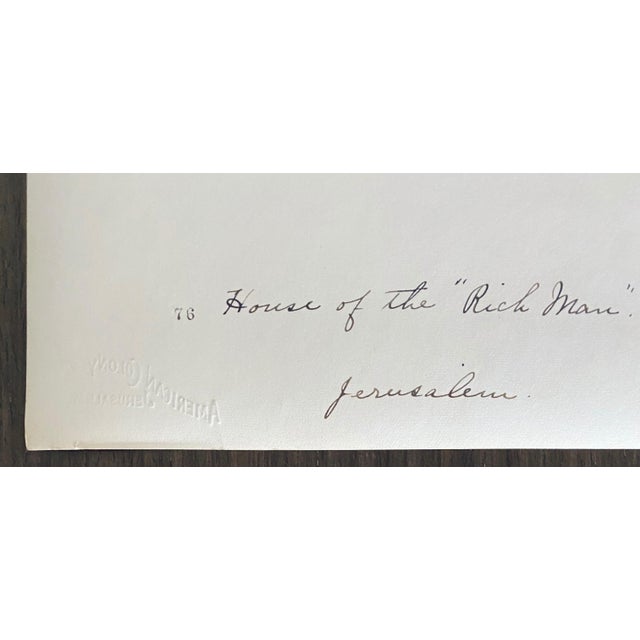 76 House of the "Rich Man".
Jerusalem.
AMERICAN COLONY
JERUSALEM